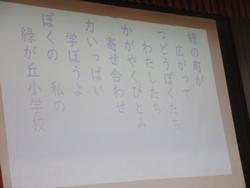 緑の町が
広がって
つどうぼくたち
わたしたち
かがやくひとみ
寄せ合わせ
力いっぱい
学ぼうよ
ぼくの　私の
緑が丘小学校